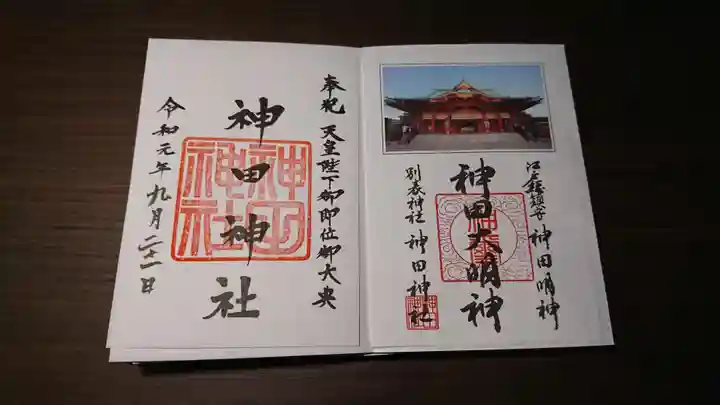 江戸総鎮守 神田明神
神田大明神
別表神社 神田神社
奉祝 天皇陛下御即位御大典
神田神社
令和元年九月二十二日
神田神社